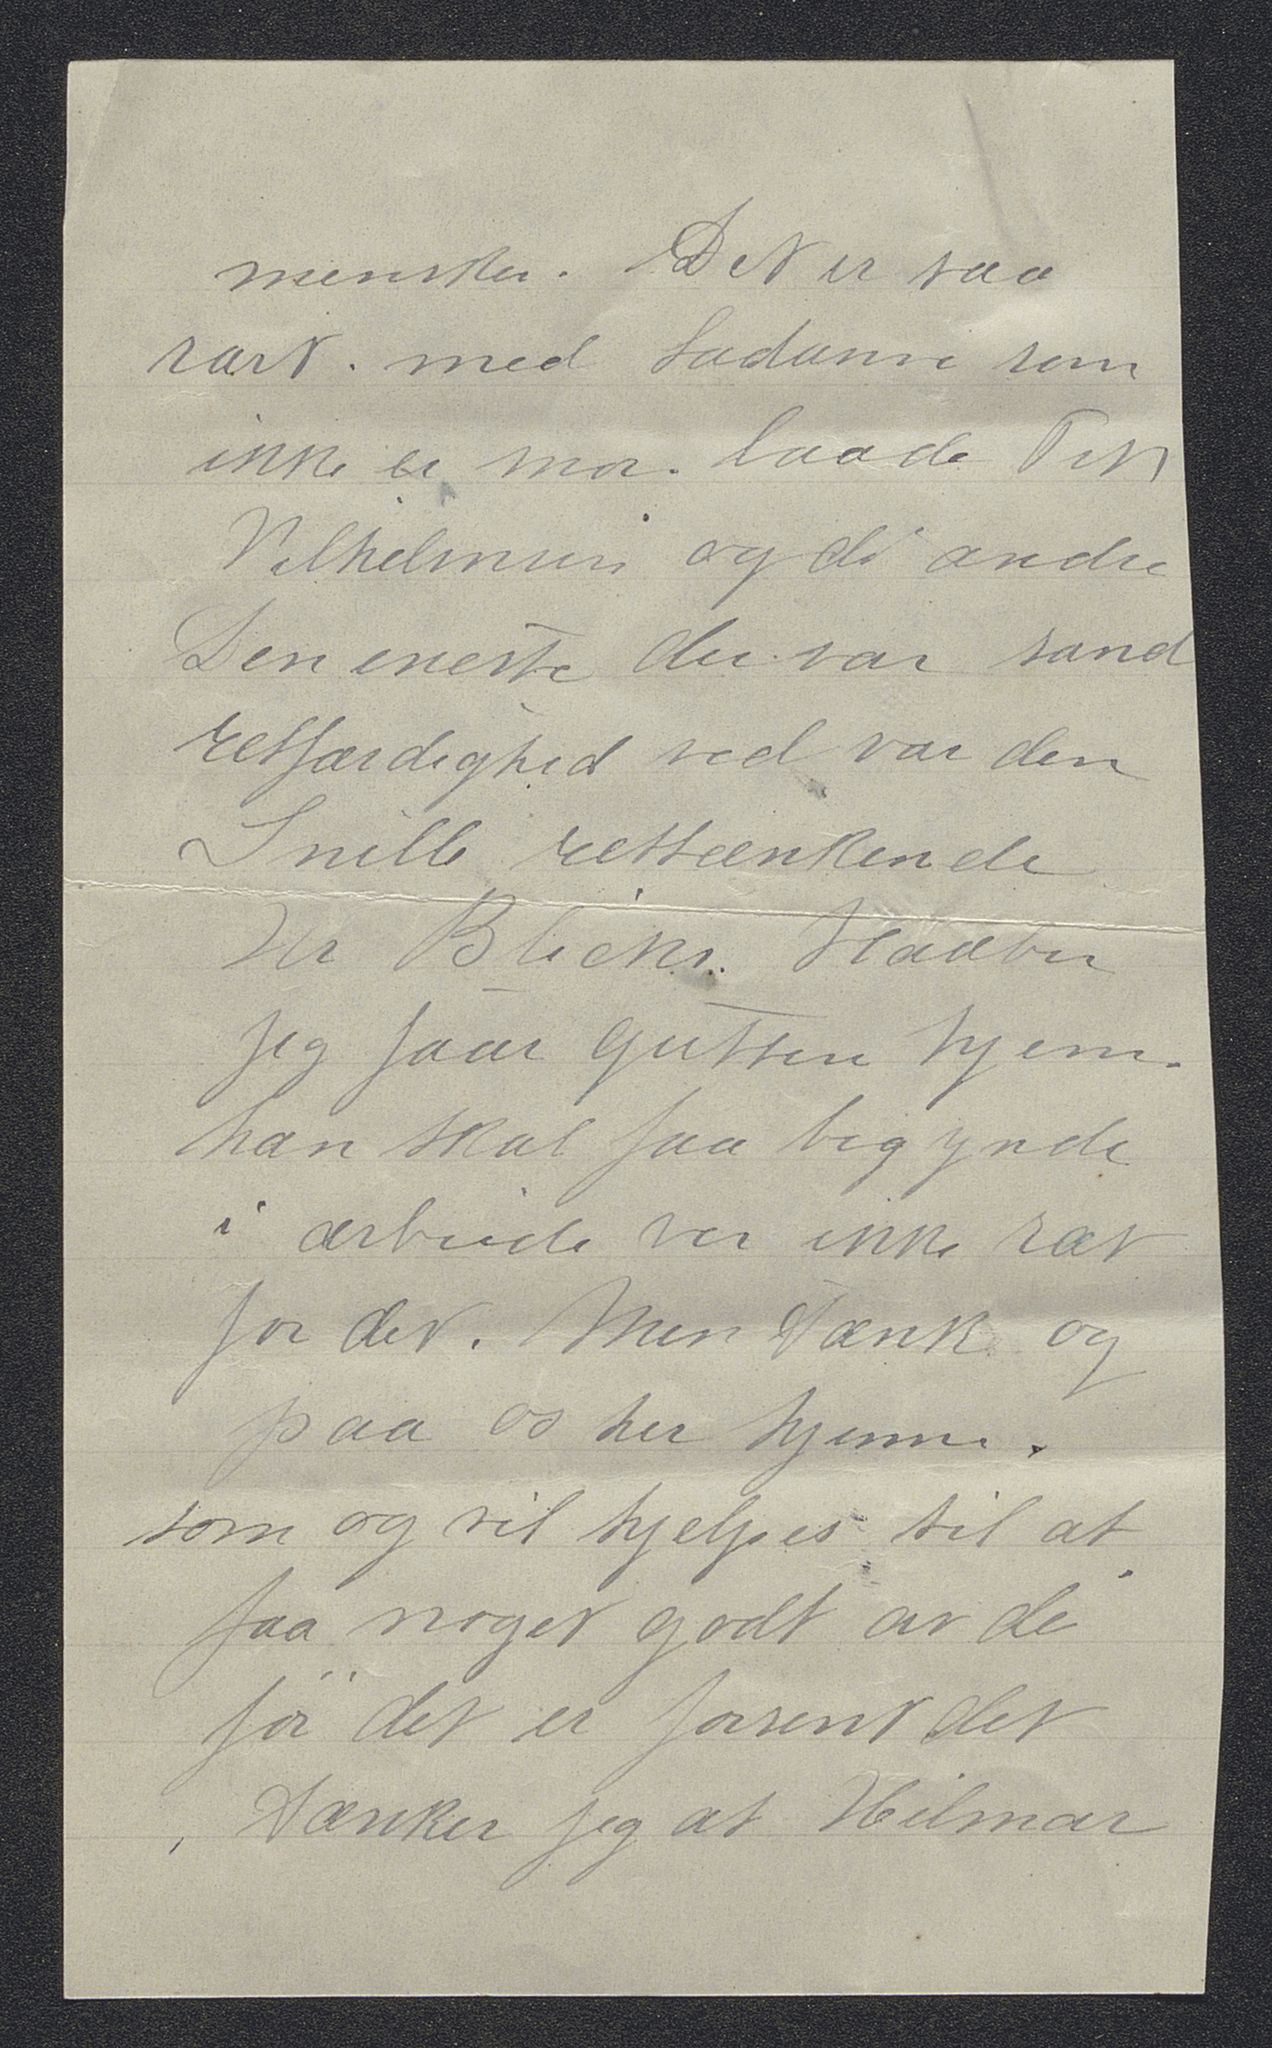 mensker. Det er saa
rart. med Sadanne som
ikke er mor. baade
Vilhelmini og di andre
Den eneste der var sand
retfærdighed ved var den
Snille rettænkende
Hr Blicks. Haaber
jeg faar Gutten hjem.
han skal faa begynde
i ærbeide ver ikke ræt
for det. Men Tænk og
paa os her hjemme.
som og vil hjelpes til at
faa noget godt av de
för det er forsent det
Tænker jeg at Hilmar